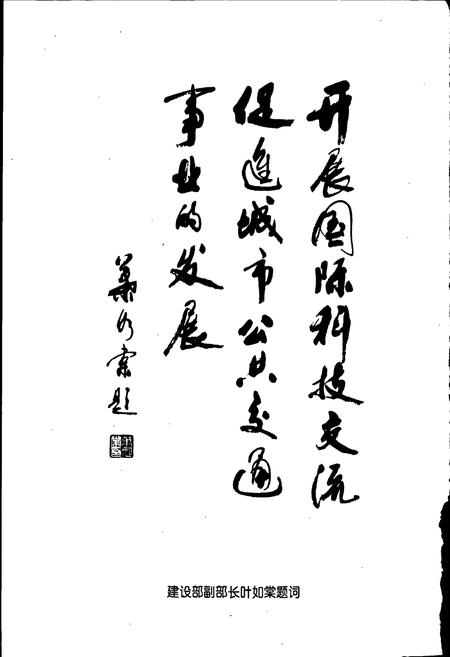 开展国际科技交流
促進城市公共交通
事业的发展
葉如棠题
建设部副部长叶如棠题词